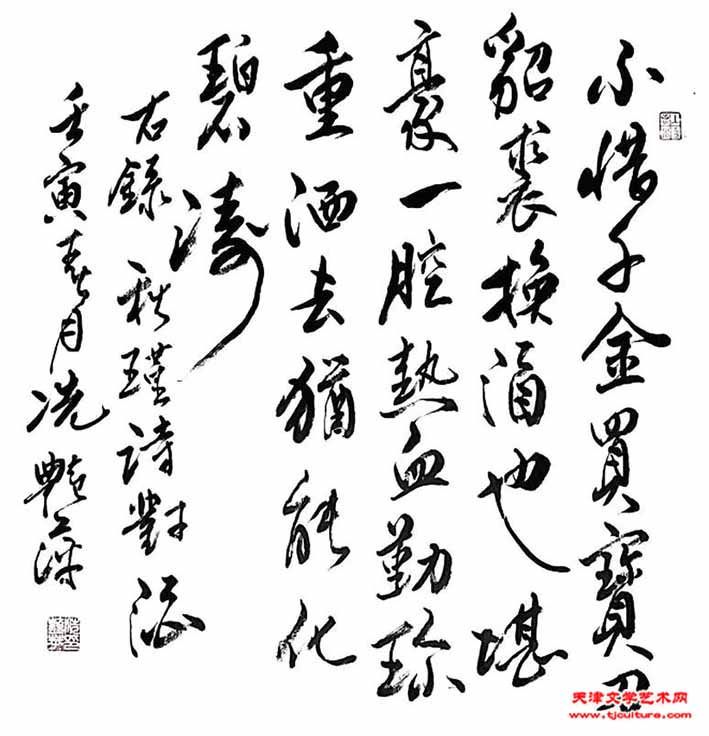 不惜千金買寶刀
貂裘換酒也堪
豪一腔熱血勤珍
重洒去猶能化
碧濤
右錄秋瑾詩對酒
壬寅春月冼艷萍
天津文学艺术网
www.tjculture.com